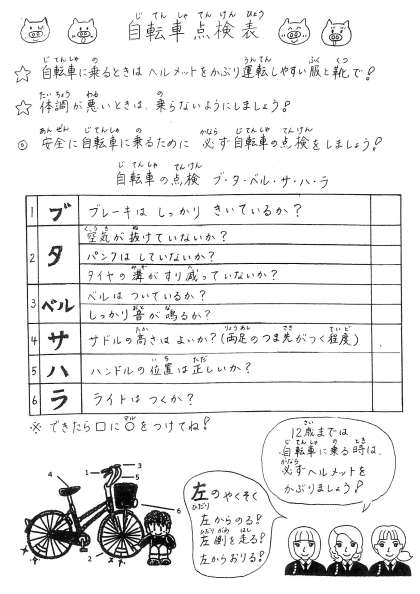 自転車点検表
☆ 自転車に乗るときはヘルメットをかぶり運転しやすい服と靴で!
☆ 体調が悪いときは、乗らないようにしましょう!
◎ 安全に自転車に乗るために 必ず自転車の点検をしましょう!
自転車の点検 ブ・タ・ベル・サ・ハ・ラ
1 ブ ブレーキは しっかり きいているか?
2 タ 空気が 抜けていないか?
パンクは していないか?
タイヤの 溝が すり減っていないか?
3 ベル ベルは ついているか?
しっかり 音が 鳴るか?
4 サ サドルの 高さは よいか?(両足のつま先がつく程度)
5 ハ ハンドルの 位置は 正しいか?
6 ラ ライトは つくか?
※ できたら□に○をつけてね!
12歳までは
自転車に乗る時は、
必ずヘルメットを
かぶりましょう!
左のやくそく
左からのる!
左側を走る!
左からおりる!
1
3
4
5
6
2